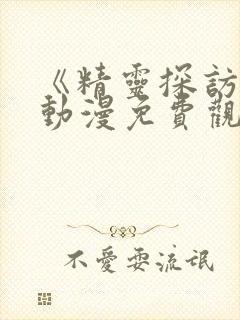 《精靈探訪
動漫免費觀
不愛耍流氓